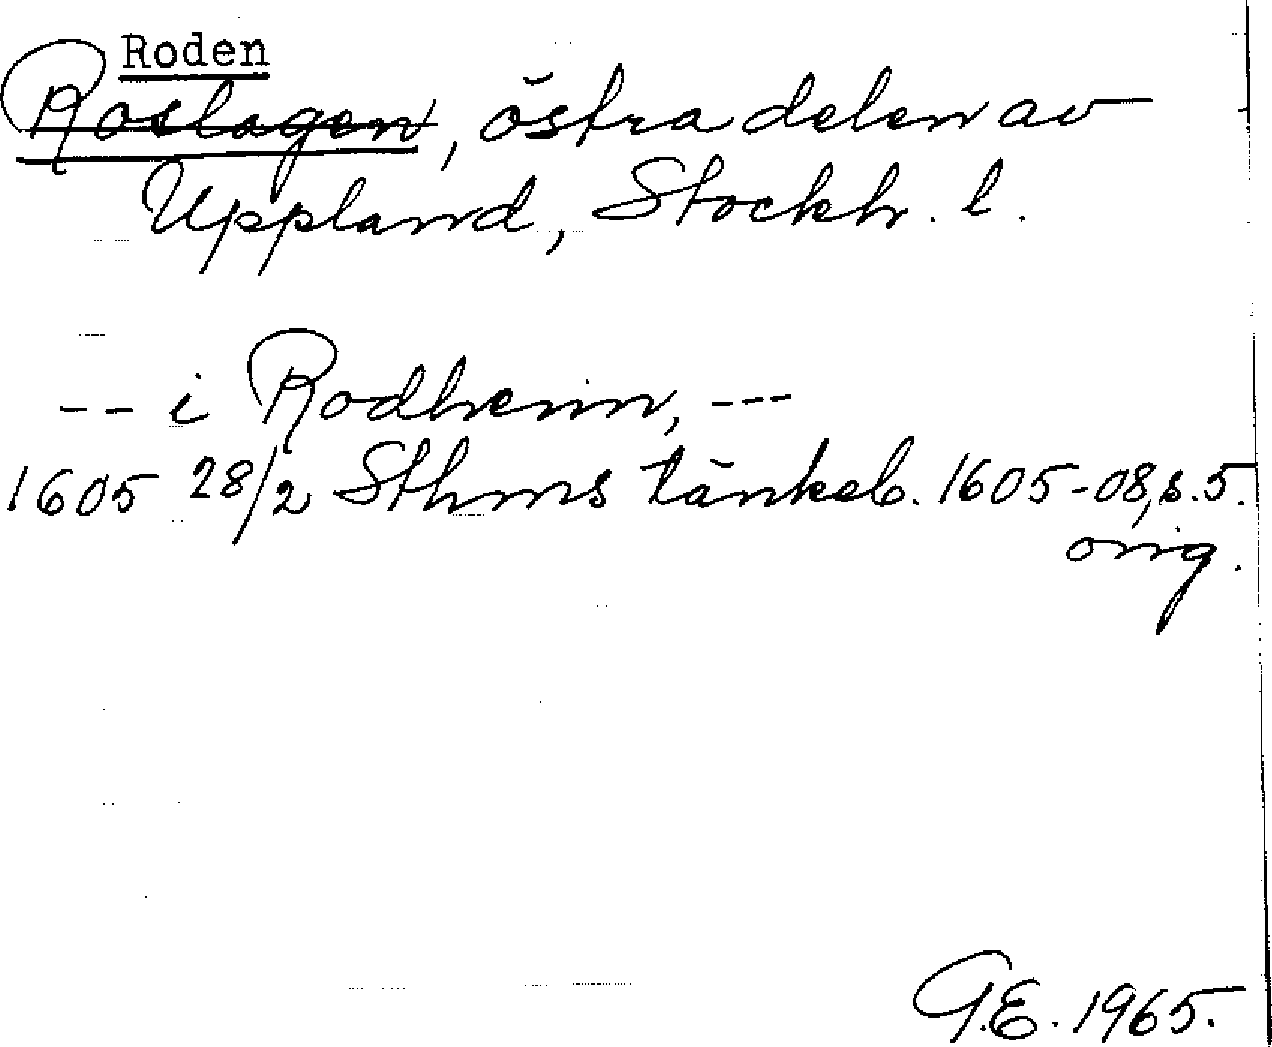 Roden
Roslagen, östra delen av
Uppland, Stockh. l.
-- i Rodhenn, ---
1605 28/2 Sthms tänkeb. 1605-08, s. 5.
orig.
G.E. 1965.